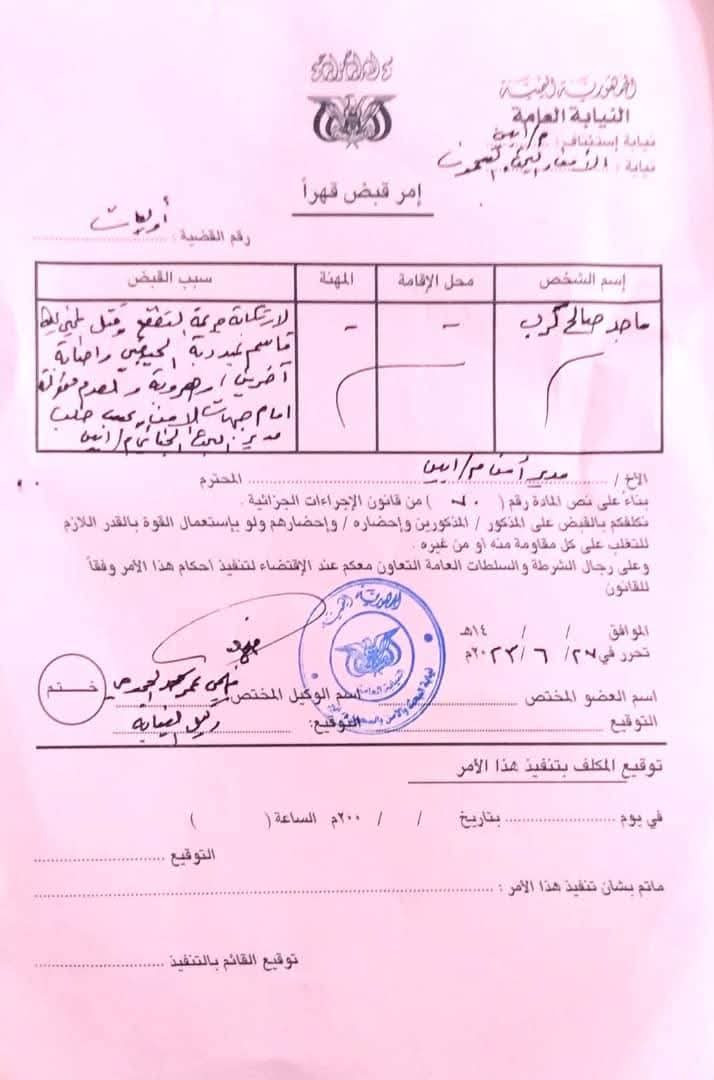 الجمهورية اليمنية
النيابة العامة
نيابة إستئناف / م/ابين
نيابة / الأمن والبحث والسجون
إمر قبض قهراً
رقم القضية : أوليات
إسم الشخص
محل الإقامة
المهنة
سبب القبض
ماجد صالح كرب
-
-
لارتكابه جريمة التقطع وقتل
قاسم
آخرين / وهروبه
امام جهات الامن حسب طلب
مدير البحث الجنائي م/ابين
الأخ / مدير أمن م/ابين المحترم
بناءً على نص المادة رقم ( ٧٠ ) من قانون الإجراءات الجزائية .
نكلفكم بالقبض على المذكور / المذكورين وإحضاره / وإحضارهم ولو بإستعمال القوة بالقدر اللازم
للتغلب على كل مقاومة منه أو من غيره .
وعلى رجال الشرطة والسلطات العامة التعاون معكم عند الإقتضاء لتنفيذ أحكام هذا الأمر وفقاً
للقانون
الموافق / / ١٤هـ
تحرر في ٢٧/ ٦ /٢٠٢٣م
الجمهورية اليمنية
النيابة العامة
إسم العضو المختص
إسم الوكيل المختص
ختم
التوقيع
التوقيع: وكيل النيابة
توقيع المكلف بتنفيذ هذا الأمر
في يوم بتاريخ / / ٢٠٠م الساعة ( )
التوقيع
ماتم بشان تنفيذ هذا الأمر :
توقيع القائم بالتنفيذ